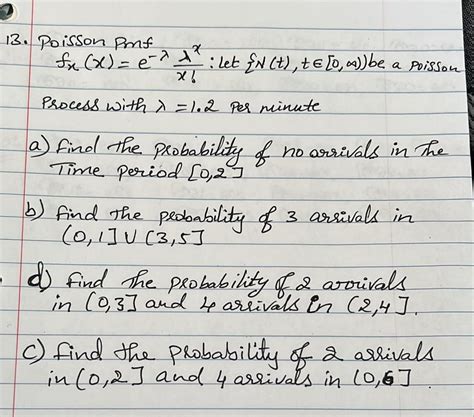 13. Poisson Pmf
fx (x) = e^-λ λ^x/x! : let {N(t), t∈[0,∞)) be a Poisson
Process with λ = 1.2 Per minute
a) find the probability of no arrivals in the
Time period [0,2]
b) find the probability of 3 arrivals in
(0,1] U (3,5]
d) find the probability of 2 arrivals
in (0,3] and 4 arrivals in (2,4].
c) find the probability of 2 arrivals
in (0,2] and 4 arrivals in (0,6].